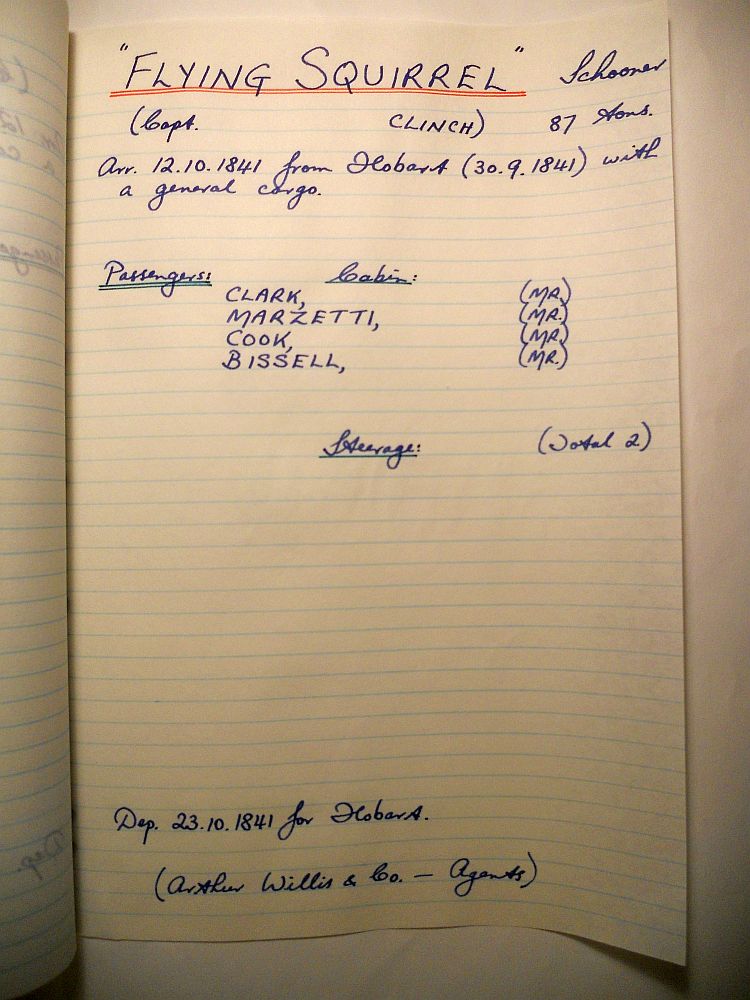 "FLYING SQUIRREL" Schooner
(Capt. CLINCH) 87 tons.
Arr. 12.10.1841 from Hobart (30.9.1841) with
a general cargo.
Passengers: Cabin:
CLARK, (MR.)
MARZETTI, (MR.)
COOK, (MR.)
BISSELL, (MR.)
Steerage: (Total 2)
Dep. 23.10.1841 for Hobart.
(Arthur Willis & Co. — Agents)